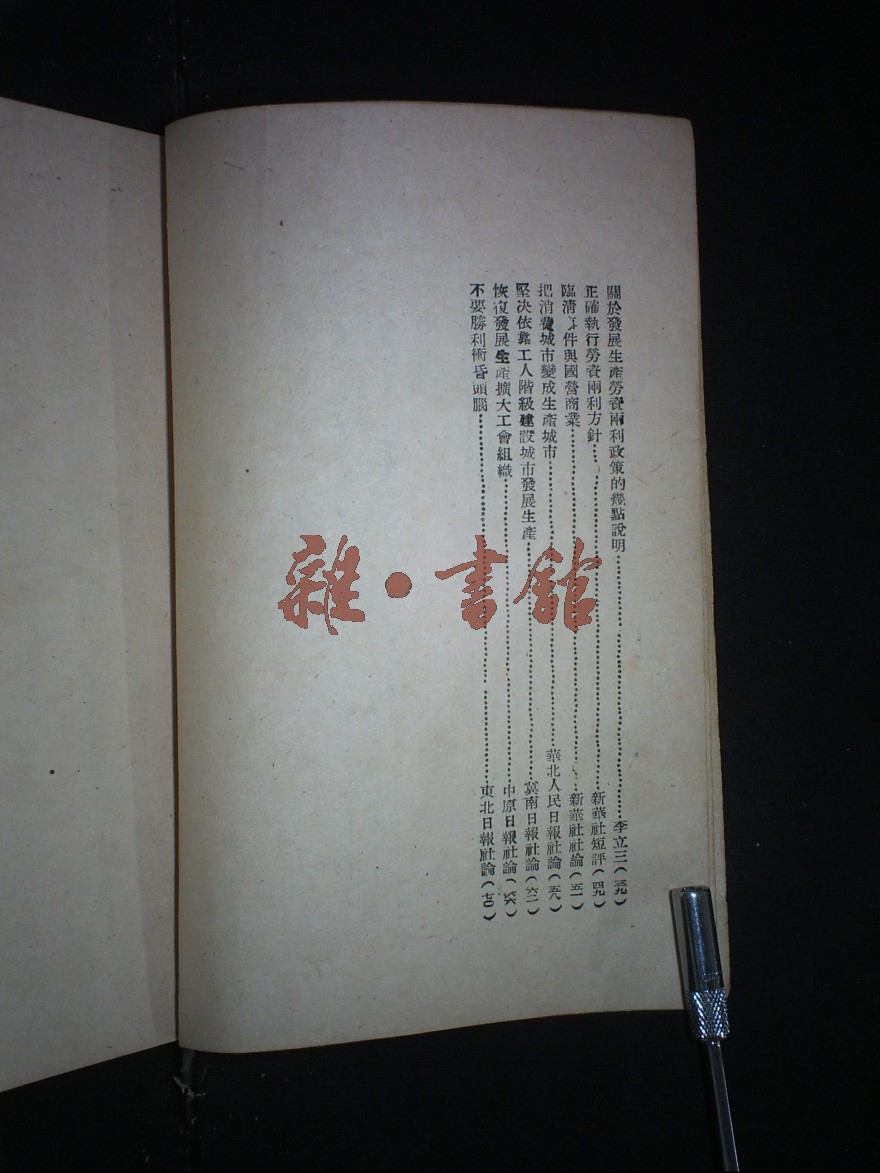 關於發展生產勞資兩利政策的幾點說明……李立三(三九)
正確執行勞資兩利方針……新華社短評(四九)
臨淸事件與國營商業……新華社社論(五一)
把消費城市變成生產城市……華北人民日報社論(五八)
堅決依靠工人階級建設城市發展生產……冀南日報社論(六二)
恢復發展生產擴大工會組織……中原日報社論(六六)
不要勝利衝昏頭腦……東北日報社論(七〇)
雜·書館